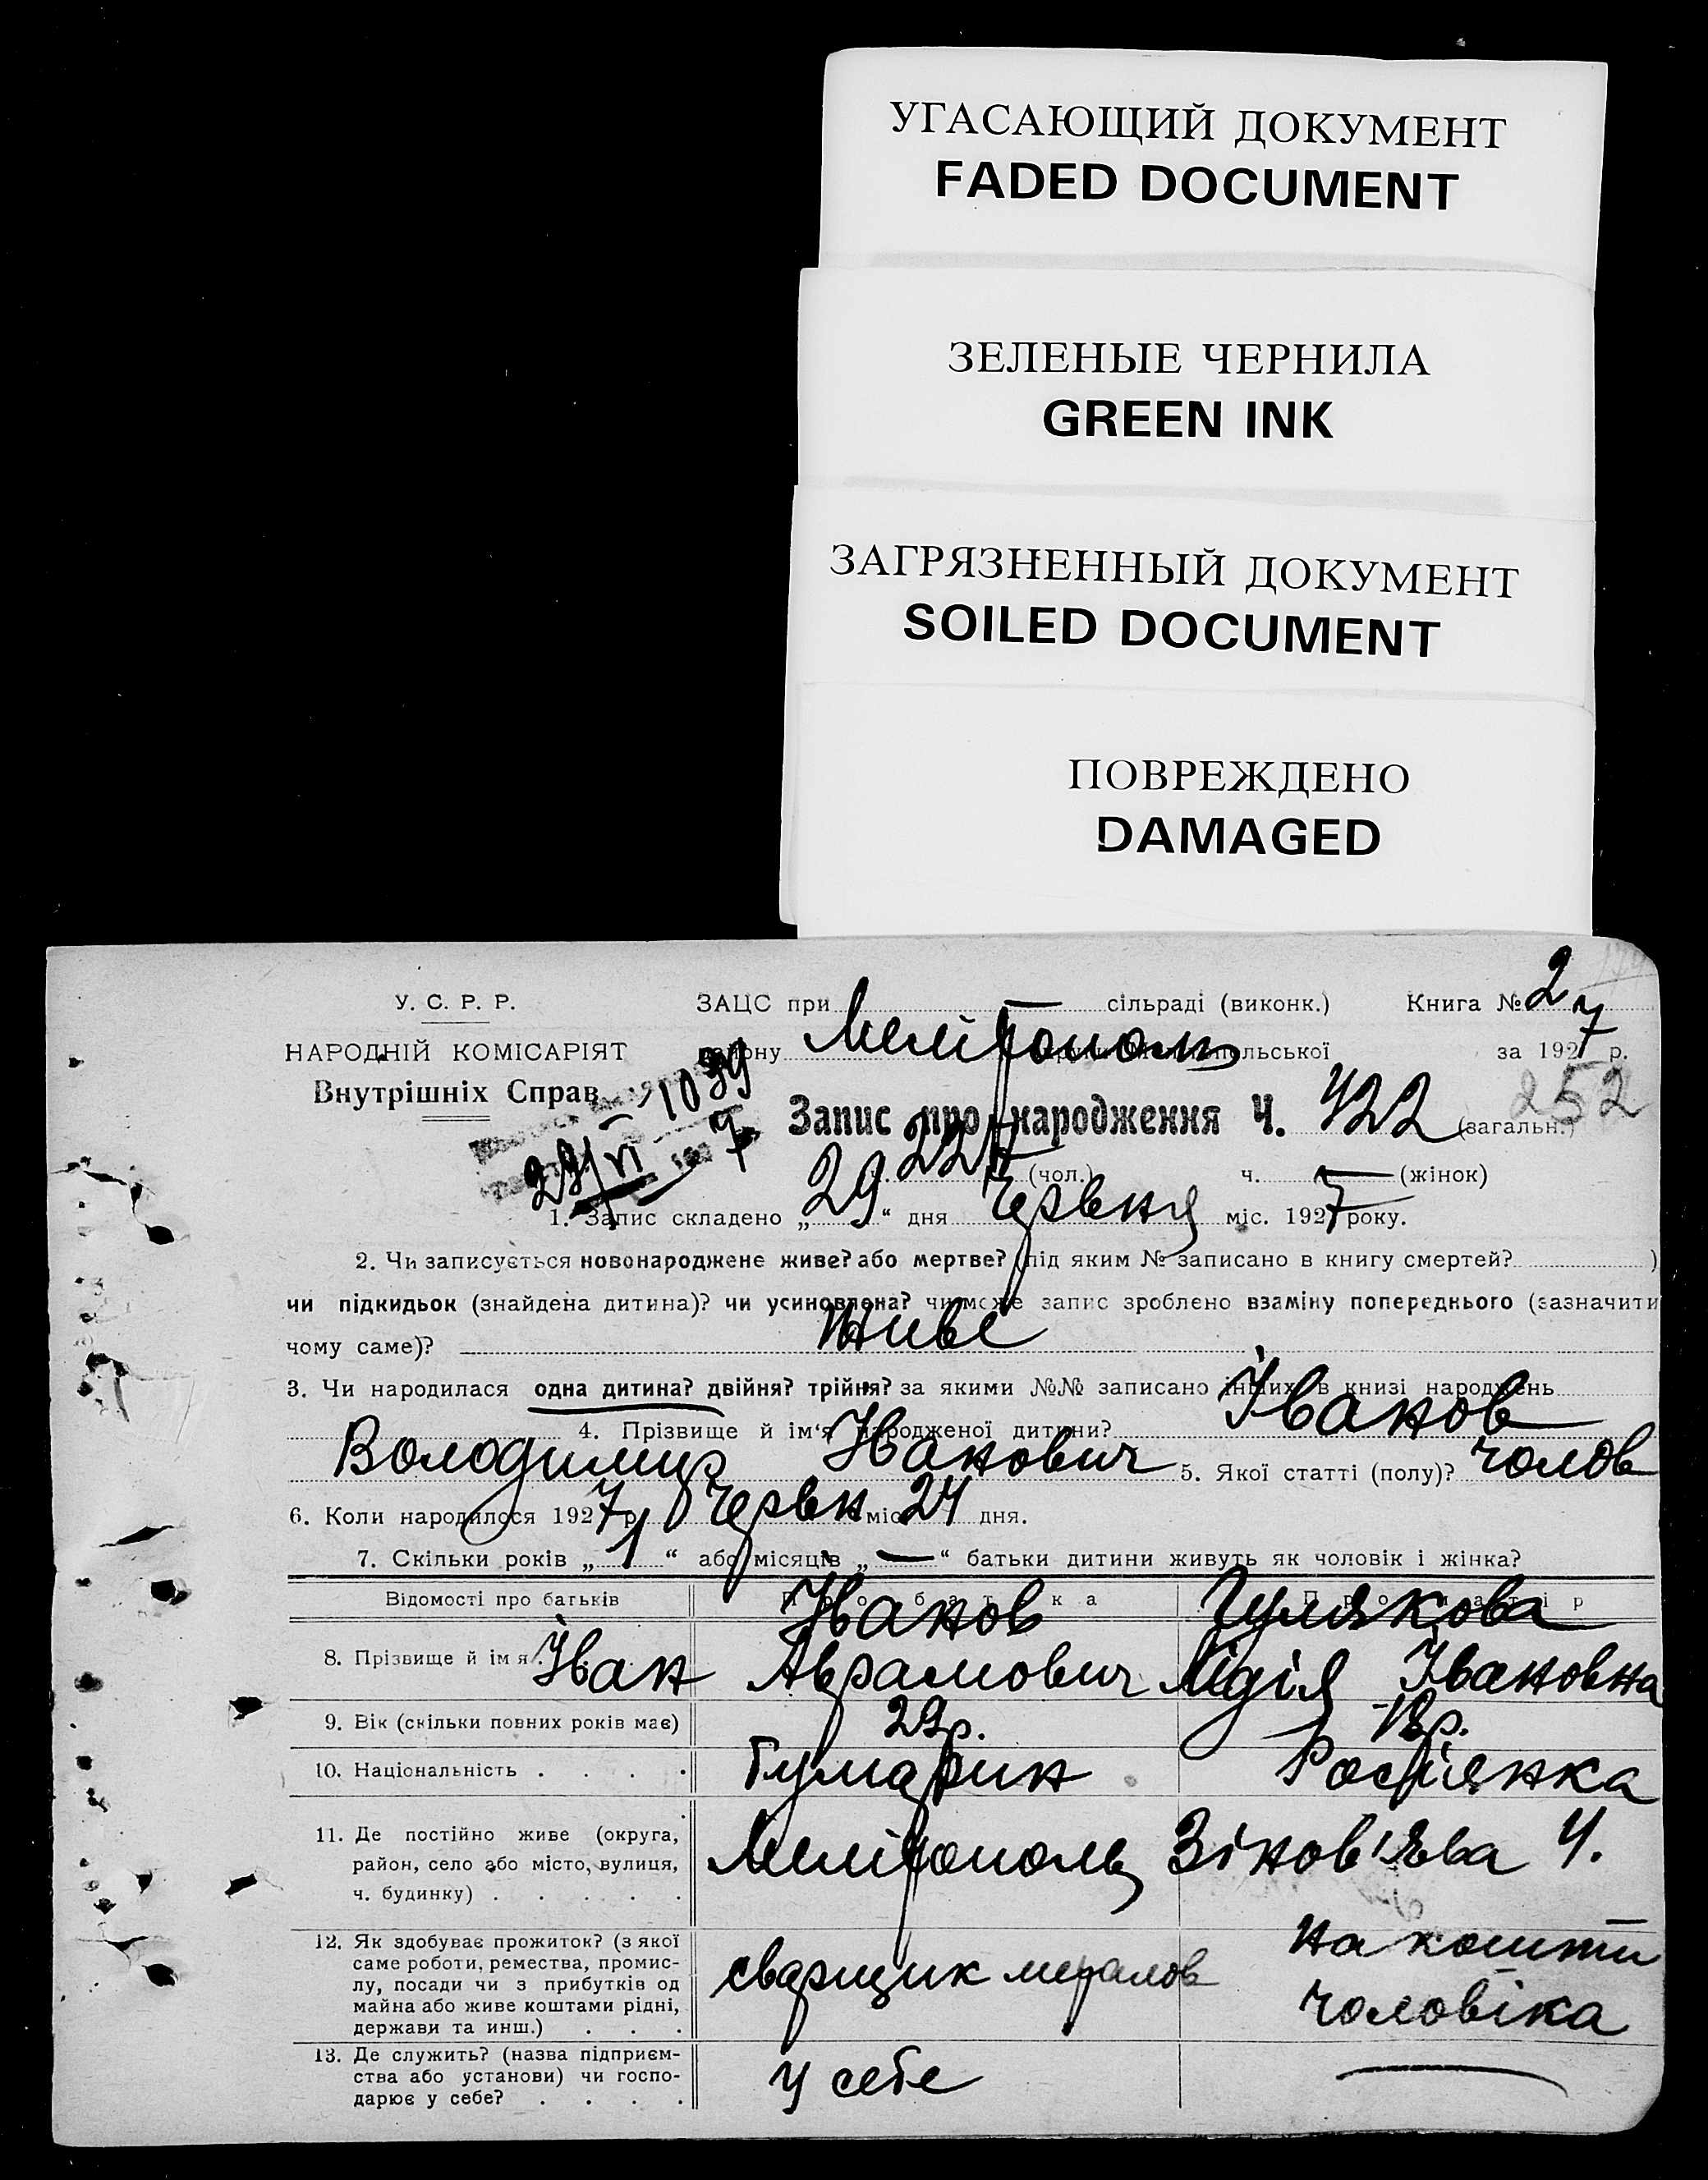 УГАСАЮЩИЙ ДОКУМЕНТ
FADED DOCUMENT
ЗЕЛЕНЫЕ ЧЕРНИЛА
GREEN INK
ЗАГРЯЗНЕННЫЙ ДОКУМЕНТ
SOILED DOCUMENT
ПОВРЕЖДЕНО
DAMAGED
У. С. Р. Р.
НАРОДНІЙ КОМІСАРІЯТ
Внутрішніх Справ
ЗАЦС при — сільраді (виконк.) Книга № 2
району Мелітополь польської за 1927 р.
1039
Запис про народження Ч. 422 (загальн.) 252
227 (чол.) ч. — (жінок)
1. Запис складено „29“ дня Червня міс. 1927 року.
2. Чи записується новонароджене живе? або мертве? (під яким № записано в книгу смертей? )
чи підкидьок (знайдена дитина)? чи усиновлена? чи може запис зроблено взаміну попереднього (зазначити
чому саме)? Живе
3. Чи народилася одна дитина? двійня? трійня? за якими №№ записано інших в книзі народжень
4. Прізвище й ім'я народженої дитини? Іванов
Володимир Іванович 5. Якої статті (полу)? чолов
6. Коли народилося 1927 р. Червн міс. 24 дня.
7. Скільки років „1“ або місяців „—“ батьки дитини живуть як чоловік і жінка?
Відомості про батьків Про батька Про матір
8. Прізвище й ім'я . Іванов Іван Аврамович Гулякова Лідія Івановна
9. Вік (скільки повних років має) 29р. 18р.
10. Національність . . . . Росіянка
11. Де постійно живе (округа,
район, село або місто, вулиця,
ч. будинку) . . . . . Мелітополь Зінов'єва 4.
12. Як здобуває прожиток? (з якої
саме роботи, ремества, промис-
лу, посади чи з прибутків од
майна або живе коштами рідні,
держави та инш.) . . . сварщик металов На кошти чоловіка
13. Де служить? (назва підприєм-
ства або установи) чи госпо-
дарює у себе? . . . . У себе —